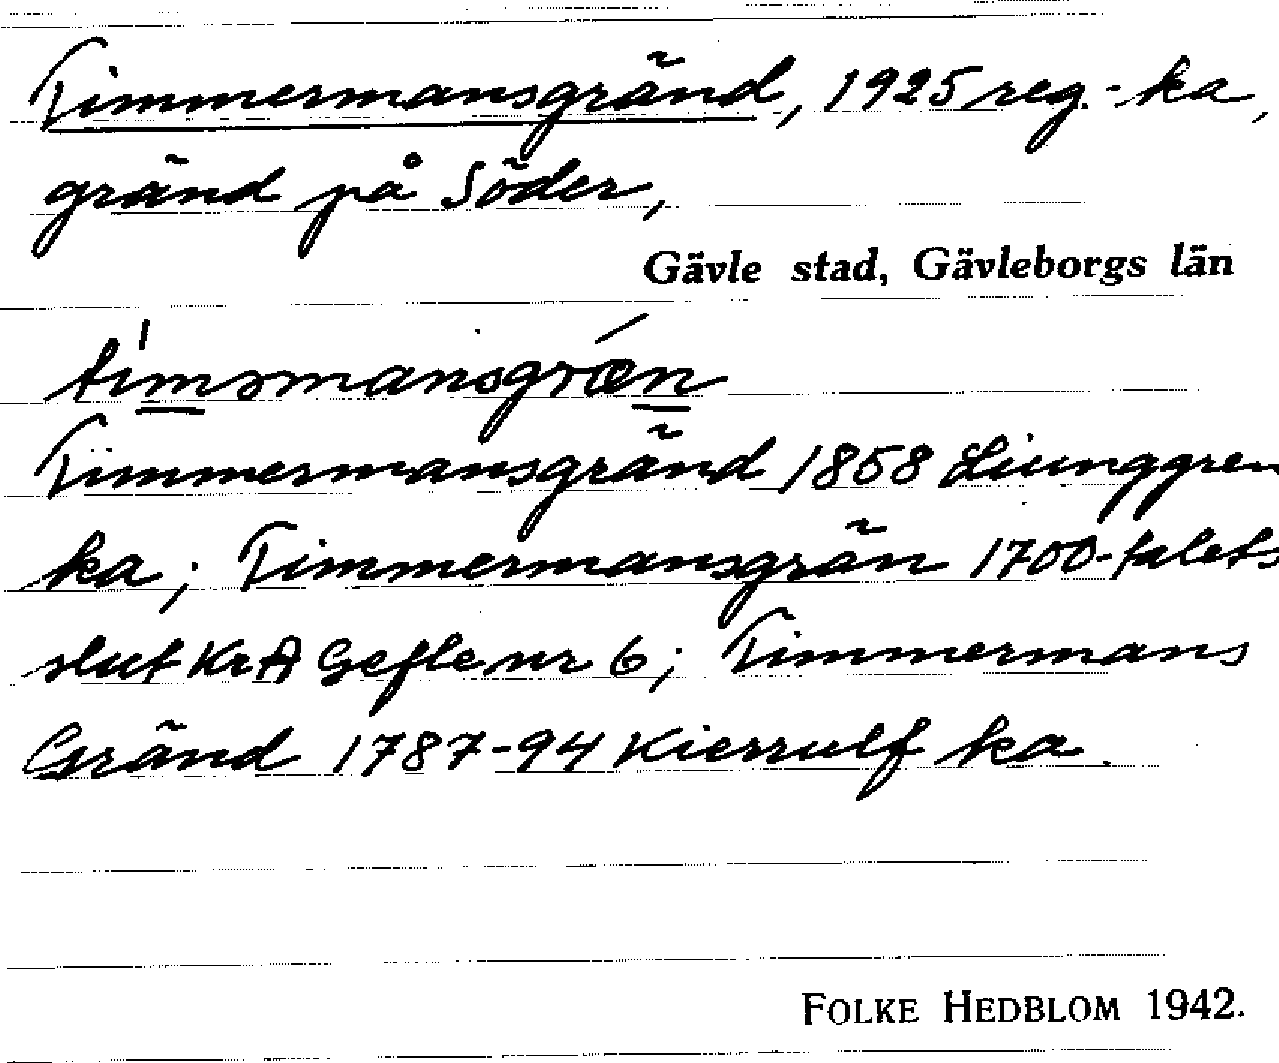 Timmermansgränd, 1925 reg.-ka,
gränd på Söder,
Gävle stad, Gävleborgs län
tìmərmansgrǽn
Timmermansgränd 1858 Liunggren
ka; Timmermansgrän 1700-talets
slut KrA Gefle nr 6; Timmermans
Gränd 1787-94 Kierrulf ka.
FOLKE HEDBLOM 1942.